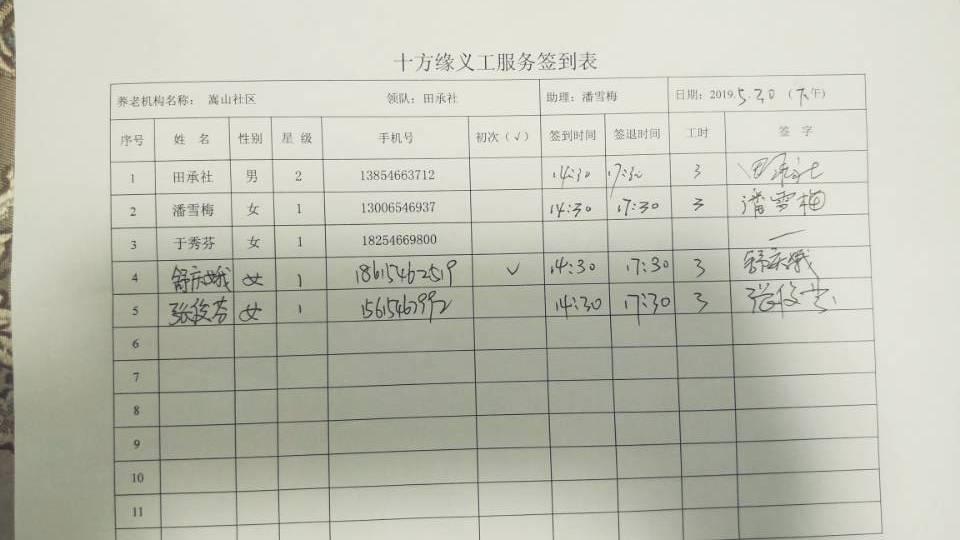 十方缘义工服务签到表
养老机构名称： 嵩山社区 领队：田承社 助理：潘雪梅 日期：2019.5.30 （下午）
序号 姓 名 性别 星 级 手机号 初次（√） 签到时间 签退时间 工时 签 字
1 田承社 男 2 13854663712 14:30 17:30 3 田承社
2 潘雪梅 女 1 13006546937 14:30 17:30 3 潘雪梅
3 于秀芬 女 1 18254669800 —
4 舒庆娥 女 1 18615462519 √ 14:30 17:30 3 舒庆娥
5 张俊芬 女 1 14:30 17:30 3
6
7
8
9
10
11